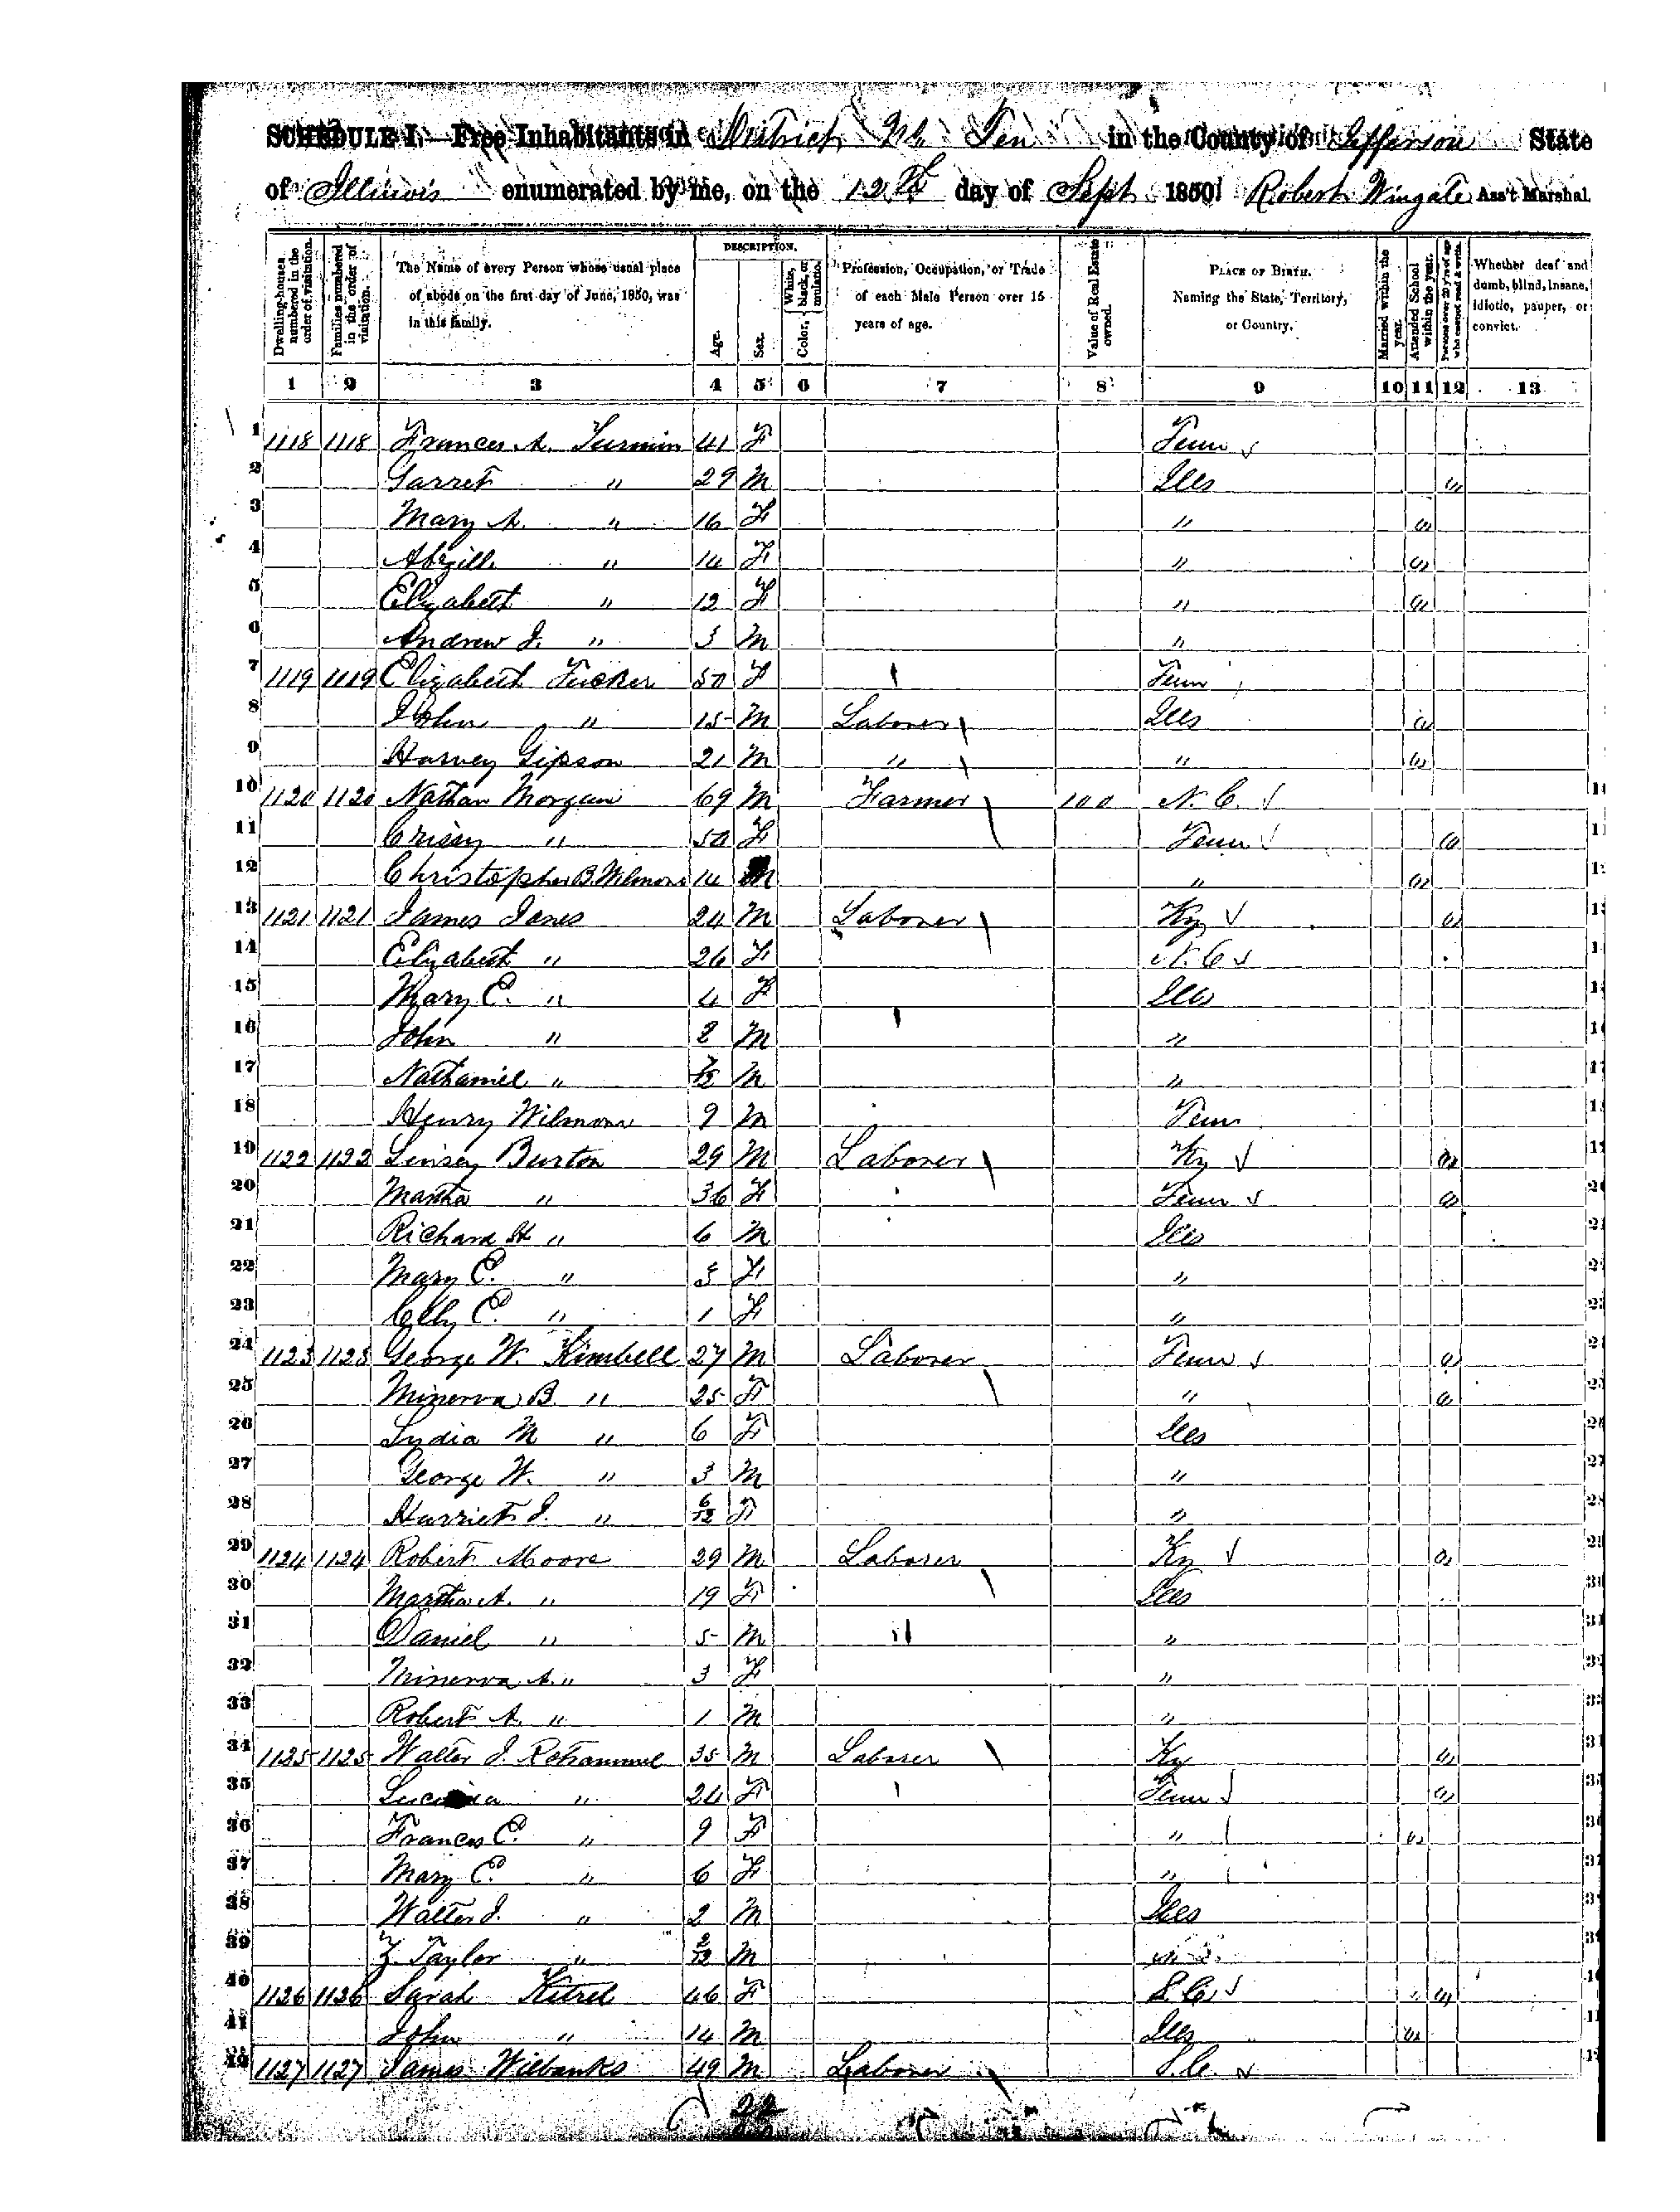 SCHEDULE I.—Free Inhabitants in District No Ten in the County of Jefferson State
of Illinois enumerated by me, on the 12th day of Sept 1850. Robert Wingate Ass't Marshal.
Dwelling-houses numbered in the order of visitation.
Families numbered in the order of visitation.
The Name of every Person whose usual place of abode on the first day of June, 1850, was in this family.
DESCRIPTION.
Age.
Sex.
Color, White, black, or mulatto.
Profession, Occupation, or Trade of each Male Person over 15 years of age.
Value of Real Estate owned.
PLACE OF BIRTH. Naming the State, Territory, or Country.
Married within the year.
Attended School within the year.
Persons over 20 y'rs of age who cannot read & write.
Whether deaf and dumb, blind, insane, idiotic, pauper, or convict.
1 2 3 4 5 6 7 8 9 10 11 12 13
1 1118 1118 Frances A. 41 F Tenn
2 Garret " 29 M Ills
3 Mary A. " 16 F "
4 " 14 F "
5 Elizabeth " 12 F "
6 Andrew J. " 3 M "
7 1119 1119 Elizabeth Tucker 50 F Tenn
8 John " 15 M Laborer Ills
9 Harvey Gipson 21 M " "
10 1120 1120 Nathan Morgan 69 M Farmer 100 N. C.
11 Crissy " 50 F Tenn
12 Christopher B. 14 M "
13 1121 1121 James Jones 24 M Laborer Ky
14 Elizabeth " 26 F N. C
15 Mary E. " 4 F Ills
16 John " 2 M "
17 Nathaniel " 7/12 M "
18 Henry 9 M Tenn
19 1122 1122 Linsey Burton 29 M Laborer Ky
20 Martha " 36 F Tenn
21 Richard H " 6 M Ills
22 Mary E. " 3 F "
23 E. " 1 F "
24 1123 1123 George W. Kimbell 27 M Laborer Tenn
25 Minerva B. " 25 F "
26 Lydia M " 6 F Ills
27 George W. " 3 M "
28 Harriet J. " 6/12 F "
29 1124 1124 Robert Moore 29 M Laborer Ky
30 Martha A. " 19 F Ills
31 Daniel " 5 M "
32 Minerva A. " 3 F "
33 Robert A. " 1 M "
34 1125 1125 Walter J. 35 M Laborer Ky
35 " 24 F Tenn
36 Frances E. " 9 F "
37 Mary E. " 6 F "
38 Walter J. " 2 M Ills
39 Z. Taylor " 2/12 M
40 1126 1126 Sarah Kitrel 46 F S. C.
41 John " 14 M Ills
42 1127 1127 James Wilbanks 49 M Laborer S. C.
22